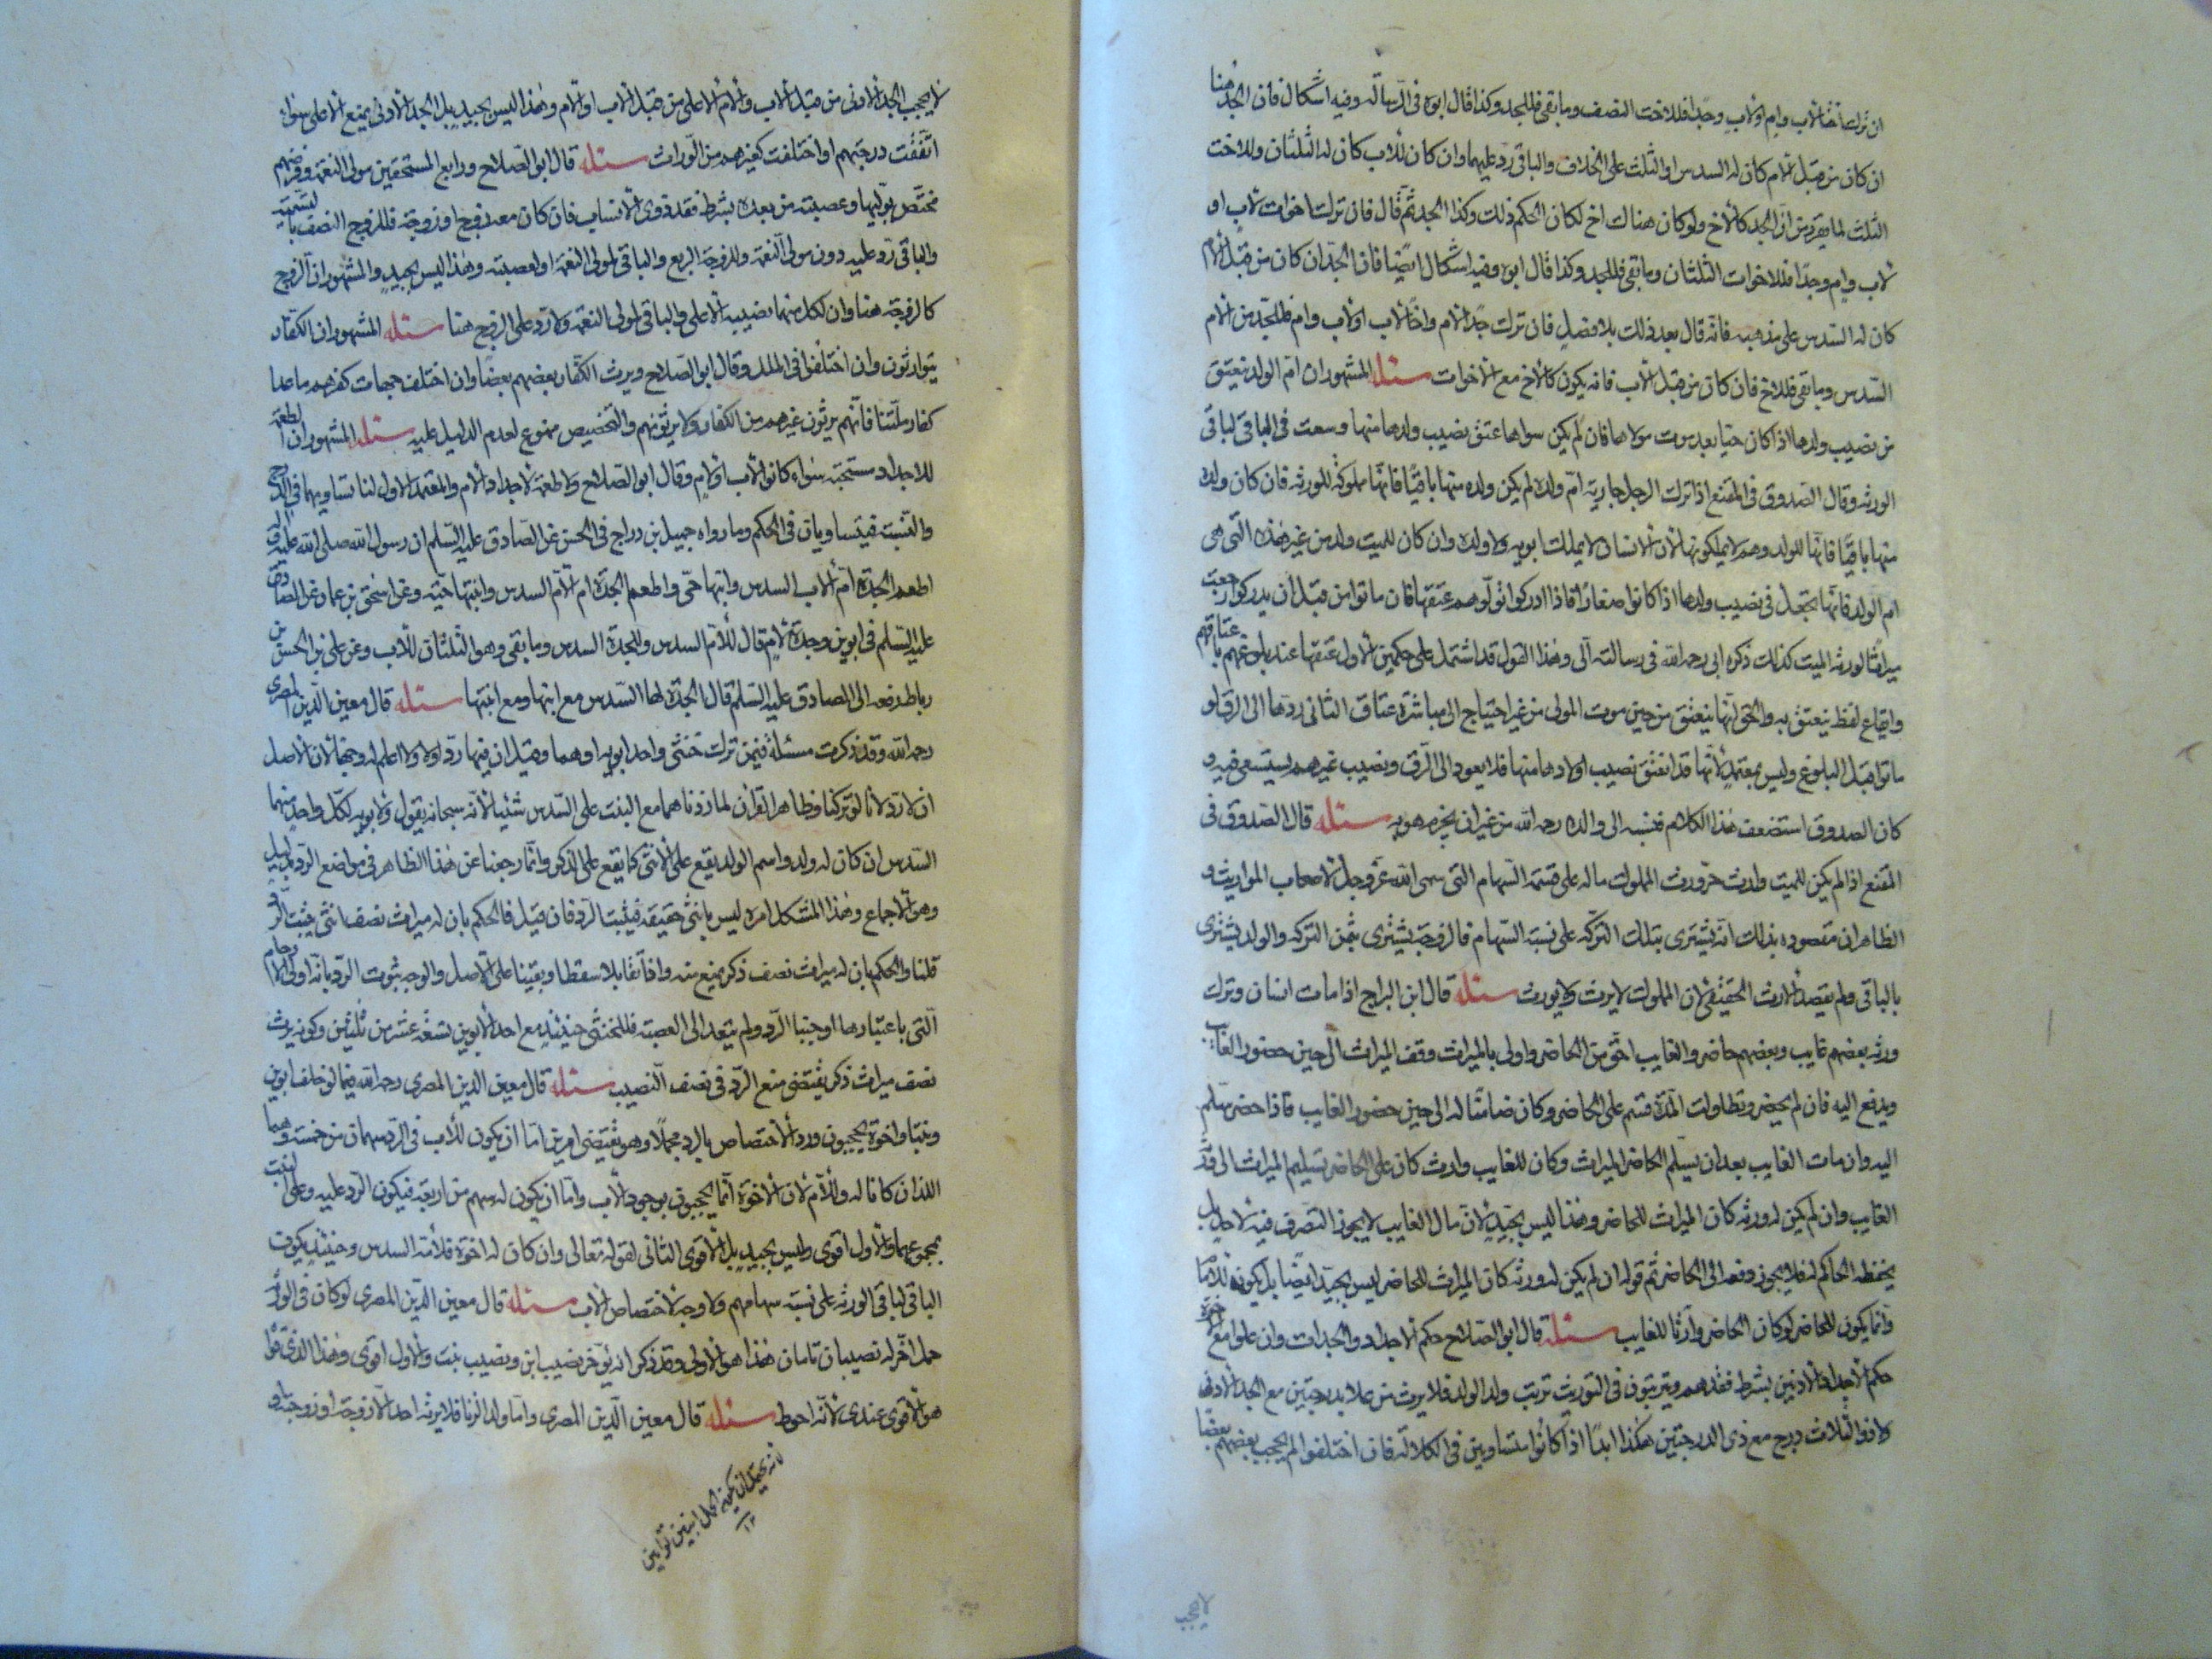 ان ترك اختا لاب وام او لاب وجدا فللاخت النصف وما بقى فللجد وكذا قال ابوه فى الرسالة وفيه اشكال فان الجد هنا
ان كان من قبل الام كان له السدس او الثلث على الخلاف والباقى رد عليهما وان كان للاب كان له الثلثان وللاخت
الثلث لما تقرر من ان الجد كالاخ ولو كان هناك اخ لكان الحكم ذلك وكذا الجد ثم قال فان ترك اخوات لاب او
لاب وام وجدا فللاخوات الثلثان وما بقى فللجد وكذا قال ابوه وفيه اشكال ايضا فان الجد ان كان من قبل الام
كان له السدس على مذهبه فانه قال بعد ذلك بلا فصل فان ترك جد الام واخا لاب او لاب وام فللجد من الام
السدس وما بقى فللاخ فان كان من قبل الاب فانه يكون كالاخ مع الاخوات مسئله المشهور ان ام الولد تعتق
من نصيب ولدها اذا كان حيا بعد موت مولاها فان لم يكن سواها عتق نصيب ولدها منها وسعت فى الباقى لباقى
الورثه وقال الصدوق فى المقنع اذا ترك الرجل جارية ام ولد ولم يكن ولده منها باقيا فانها مملوكة للورثه فان كان ولده
منها باقيا فانها للولد وهم لا يملكونها لان الانسان لا يملك ابويه ولا ولده وان كان للميت ولد من غير هذه التى هى
ام الولد فانها تجعل فى نصيب ولدها اذا كانوا صغارا فاذا ادركوا تولوا هم عتقها فان ماتوا من قبل ان يدركوا رجعت
ميراثا لورثه الميت كذلك ذكره ابى رحمه الله فى رسالته الى وهذا القول قد اشتمل على حكمين الاول عتقها عند بلوغهم باعتاقهم
وايقاع لفظ ينعتق به والحق انها ينعتق من حين موت المولى من غير احتياج الى مباشرة عتاق الثانى ردها الى الرق لو
ماتوا قبل البلوغ وليس بمعتمد لانها قد انعتق نصيب اولادها منها فلا يعود الى الرق ونصيب غيرهم يستسعى فيه و
كان الصدوق استضعف هذا الكلام فنسبه الى والده رحمه الله من غير ان يجزم هو به مسئله قال الصدوق فى
المقنع اذا لم يكن للميت وارث حر ورث المملوك ماله على قسمة السهام التى سمى الله عز وجل لاصحاب المواريث و
الظاهر ان مقصوده بذلك انه يشترى بتلك التركه على نسبة السهام فالزوجة يشترى بثمن التركه والولد يشترى
بالباقى ولم يقصد الارث الحقيقى لان المملوك لا يرث ولا يورث مسئله قال ابن البراج اذا مات انسان وترك
ورثه بعضهم غايب وبعضهم حاضر والغايب احق من الحاضر واولى بالميراث وقف الميراث الى حين حضور الغايب
ويدفع اليه فان لم يحضر وتطاولت المدة قسم على الحاضر وكان ضامنا له الى حين حضور الغايب فاذا حضر سلم
اليه وان مات الغايب بعد ان تسلم الحاضر الميراث وكان للغايب وارث كان على الحاضر تسليم الميراث الى ورثة
الغايب وان لم يكن له ورثه كان الميراث للحاضر وهذا ليس بجيد لان مال الغايب لا يجوز التصرف فيه لاحد بل
يحفظه الحاكم له فلا يجوز دفعه الى الحاضر ثم قوله ان لم يكن له ورثه كان الميراث للحاضر ليس بجيد ايضا بل يكون للامام
وانما يكون للحاضر لو كان الحاضر وارثا للغايب مسئله قال ابو الصلاح حكم الاجداد والجدات وان علوا مع الاخوة
حكم الاجداد الادنين بشرط فقدهم ويترتبون فى التوريث ترتب ولد الولد فلا يرث من علا بدرجتين مع الجد الادنى
ولا ذو الثلاث درج مع ذى الدرجتين هكذا ابدا اذا كانوا متساويين فى الكلاله فان اختلفوا لم يحجب بعضهم بعضا
لا يحجب
لا يحجب الجد الادنى من قبل الاب والام الاعلى من قبل الاب او الام وهذا ليس بجيد بل الجد الادنى يمنع الاعلى سواء
اتفقت درجتهم او اختلفت كغيرهم من الوراث مسئله قال ابو الصلاح ورابع المستحقين مولى النعمة وفرضهم
مختص بوليها وعصبته من بعده بشرط فقد ذوى الانساب فان كان معه زوج او زوجة فللزوج النصف بالتسمية
والباقى رد عليه دون مولى النعمة وللزوجة الربع والباقى لمولى النعمة او لعصبته وهذا ليس بجيد والمشهور ان الزوج
كالزوجة هنا وان لكل منهما نصيبه الاعلى والباقى لمولى النعمة ولا رد على الزوج هنا مسئله المشهور ان الكفار
يتوارثون وان اختلفوا فى الملل وقال ابو الصلاح ويرث الكفار بعضهم بعضا وان اختلف جهات كفرهم ما عدا
كفار ملتنا فانهم يرثون غيرهم من الكفار ولا يرثونهم والتخصيص ممنوع لعدم الدليل عليه مسئله المشهور ان الطعمة
للاجداد مستحبة سواء كانوا لاب او لام وقال ابو الصلاح ولا طعمة لاجداد الام والمعتمد الاول لنا تساويهما فى الدرج
والنسبة فيتساويان فى الحكم وما رواه جميل بن دراج فى الحسن عن الصادق عليه السلم ان رسول الله صلى الله عليه واله
اطعم الجدة ام الاب السدس وابنها حى واطعم الجدة ام الام السدس وابنتها حية وعن اسحق بن عمار عن الصادق
عليه السلم فى ابوين وجدة لام قال للام السدس وللجدة السدس وما بقى وهو الثلثان للاب وعن على بن الحسن بن
رباط رفعه الى الصادق عليه السلم قال الجدة لها السدس مع ابنها ومع ابنتها مسئله قال معين الدين المصرى
رحمه الله وقد ذكرت مسئلة فيمن ترك خنثى واحد ابويه او هما وقيل ان فيها رد اولا ولا اعلم له وجها لان الاصل
ان لا رد ولانا لو تركنا وظاهر القران لما زدناهما مع البنت على السدس شيئا لانه سبحانه يقول ولابويه لكل واحد منهما
السدس ان كان له ولد واسم الولد يقع على الانثى كما يقع على الذكر وانما رجعنا عن هذا الظاهر فى مواضع الرد بدليل
وهو الاجماع وهذا المشكل امره ليس بانثى حقيقة فيثبت الرد فان قيل فالحكم بان له ميراث نصف انثى يثبت الرد
قلنا والحكم بان له ميراث نصف ذكر يمنع منه واذا تقابلا سقطا وبقينا على الاصل والوجه ثبوت الرد بانه اولى الارحام
التى باعتبارها اوجبنا الرد ولم يتعد الى العصبة فللخنثى حينئذ مع احد الابوين تسعة عشر من ثلثين وكونه يرث
نصف ميراث ذكر يقتضى منع الرد فى نصف النصيب مسئله قال معين الدين المصرى رحمه الله فيما لو خلف ابوين
وبنتا واخوة يحجبون ورد الاختصاص بالرد مجملا وهو يقتضى امرين اما ان يكون للاب فى الرد سهمان من خمسة وهما
اللذان كانا له وللام لان الاخوة انما يحجبون بوجود الاب واما ان يكون له سهم من اربعة فيكون الرد عليه وعلى البنت
بمجموعهما والاول اقوى وليس بجيد بل الاقوى الثانى لقوله تعالى وان كان له اخوة فلامه السدس وحينئذ يكون
الباقى لباقى الورثه على نسبة سهامهم ولا وجه لاختصاص الاب مسئله قال معين الدين المصرى لو كان فى الورثة
حمل اخر له نصيبان تامان هذا هو الاولى وقد ذكر انه يؤخر نصيب ابن ونصيب بنت والاول اقوى وهذا الذى قواه
هو الاقوى عندى لانه احوط مسئله قال معين الدين المصرى واما ولد الزنا فلا يرثه احد الا زوجة او زوجتاو
لانه يحتمل ان يكون الحمل ابنين توأمين
١٢